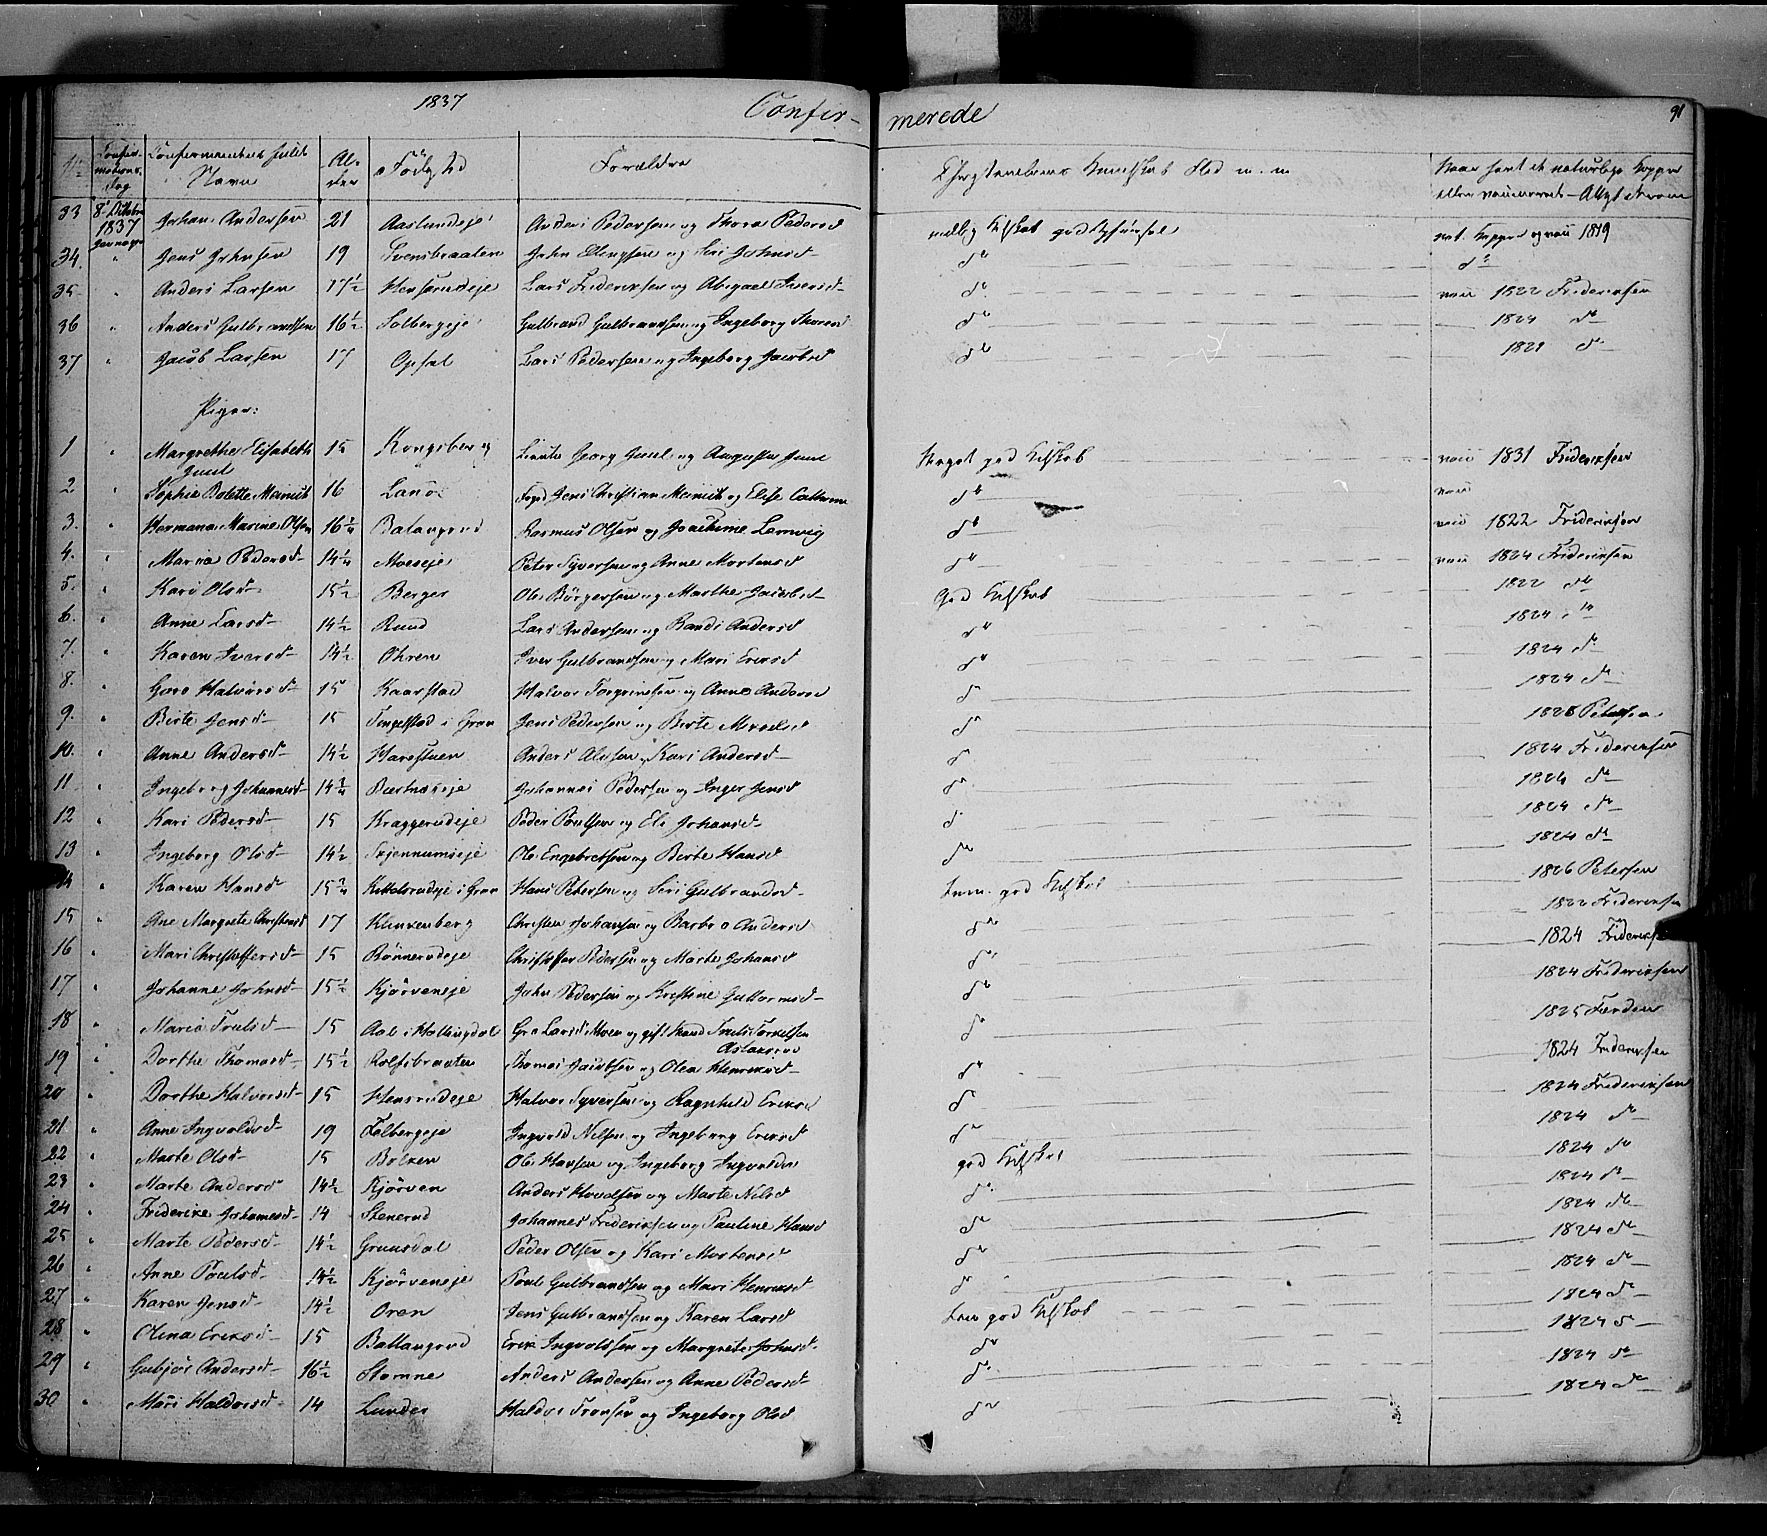 1837 Confir- merede 91
No Confirmations dag Confirmantens fulde Navn Alder Fødested Forældre Christendoms Kundskab Flid m. m Naar havt de naturlige Kopper eller vaccineret - Attest derom
33 8de Octobr 1837 Johan Andersen 21 Aaslundeje Anders Pedersen og Thora Pedersd god nat. Kopper 1819
34. " Jens Johnsen 19 Svensbraaten John Ellingsen og Siri Johnsd do do
35 " Anders Larsen 17½ Hensrudeje Lars Frideriksen og Abigael Iversd- do vacc 1822 Frideriksen
36 " Anders Gulbrandsen 16½ Solbergeje Gulbrand Gulbrandsen og Ingeborg do 1824 do
37 " Jacob Larsen 17 Opsal Lars Pedersen og Ingeborg Jacobsd do 1821 do
Piger:
1 " Margrethe Elisabeth 15 Kongsberg Georg og Augusta Meget god Kdskab vacc 1831 Frideriksen
2 " Sophie Bolette Meinich 16 Land Jens Christian Meinich og Elise Cathrine do vacc
3. " Hermana Marine Olsen 16¼ Balangrud Rasmus Olsen og Joachime Lemvig do vacc 1822 Frideriksen
4. " Maria Pedersd- 14¼ Moeseje Peter Syversen og Anne Mortensd do vacc 1824 Frideriksen
5. " Kari Olsd- 15½ Berger Ole Börgersen og Marthe Jacobsd- God Kdskab 1822 do
6. " Anne Larsd- 14½ Ruud Lars Andersen og Randi Andersd do 1824 do
7. " Karen Iversd- 14½ Ohren Iver Gulbrandsen og Mari Eriksd do 1824 do
8. " Goro Halvorsd- 15 Kaarstad Halvor Torgrimsen og Anne Andersd do 1824 do
9. " Birte Jensd- 15 Tingelstad i Gran Jens Pedersen og Birte do 1826 Petersen
10. " Anne Andersd- 14½ Harestuen Anders og Kari Andersd- do 1824 Frideriksen
11 " Ingeborg Johannesd- 14¾ Johannes Pedersen og Inger Jensd do 1824 do
12 " Kari Pedersd- 15 Kraggerudeje Peder Poulsen og Eli Johansd- do 1824 do
13 " Ingeborg Olsd- 14½ Skjennumseje Ole Engebretsen og Birte Hansd do 1824 do
14 " Karen Hansd 15¾ Kittelsrudeje i Gran Hans Petersen og Siri Gulbrandsd- god Kdskab 1826 Petersen
15 " Ane Margrete Christensd 17 Klinkenberg Christen Johansen og Barbro Andersd do 1822 Frideriksen
16 " Mari Christoffersd- 15 Rönnerudeje Christoffer Pedersen og Marte Johansd do 1824 Frideriksen
17 " Johanne Johnsd- 15½ Kjörveneje John Pedersen og Kristine Guttormsd- do 1824 Frideriksen
18 " Maria Trulsd- 15 Aal i Hallingdal Gro Larsd Moen og gift Mand Truls Torkelsen do 1825 Færden
19 " Dorthe Thomasd- 15½ Rolfsbraaten Thomas Jacobsen og Olea Henriksd- do 1824 Frideriksen
20 " Dorthe Halvorsd- 15 Hensrudeje Halvor Syversen og Ragnhild Eriksd do 1824 Frideriksen
21 " Anne Ingvoldsd- 19 Solbergeje Ingvold Nilsen og Ingeborg Eriksd do 1824 do
22 " Marte Olsd- 15 Bolken Ole Hansen og Ingeborg Ingvoldsd god Kdskab 1824 do
23 " Marte Andersd 14½ Kjörven Anders Hovalsen og Marte Nilsd do 1824 do
24 " Friderike Johannesd- 14 Stenerud Johannes Frideriksen og Pauline Hansd do 1824 do
25 " Marte Pedersd- 14½ Grunsdal Peder Olsen og Kari Mortensd do 1824 do
26 " Anne Poulsd- 14½ Kjörveneje Poul Gulbrandsen og Mari Henriksd do 1824 do
27 " Karen Jensd- 14½ Oren Jens Gulbrandsen og Karen Larsd god Kdskab 1824 do
28 " Olina Eriksd- 15 Ballangrud Erik Ingvoldsen og Margrete Johnsd- do 1824 do
29 " Gubjør Andersd- 16½ Stomne Anders Andersen og Anne Pedersd- do 1824 do
30 " Mari Haldorsd- 14 Lunder Haldor Tronsen og Ingeborg Olsd do 1824 do